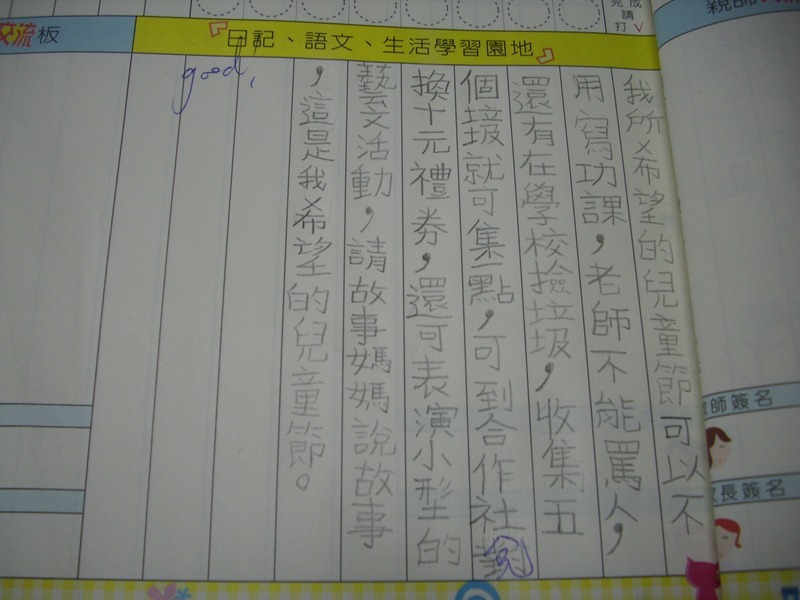 完成請打√
親師
交流板
『日記、語文、生活學習園地』
我所希望的兒童節可以不
用寫功課，老師不能罵人，
還有在學校撿垃圾，收集五
個垃圾就可集一點，可到合作社兌
換十元禮券，還可表演小型的
藝文活動，請故事媽媽說故事
，這是我希望的兒童節。
good!
師簽名
長簽名